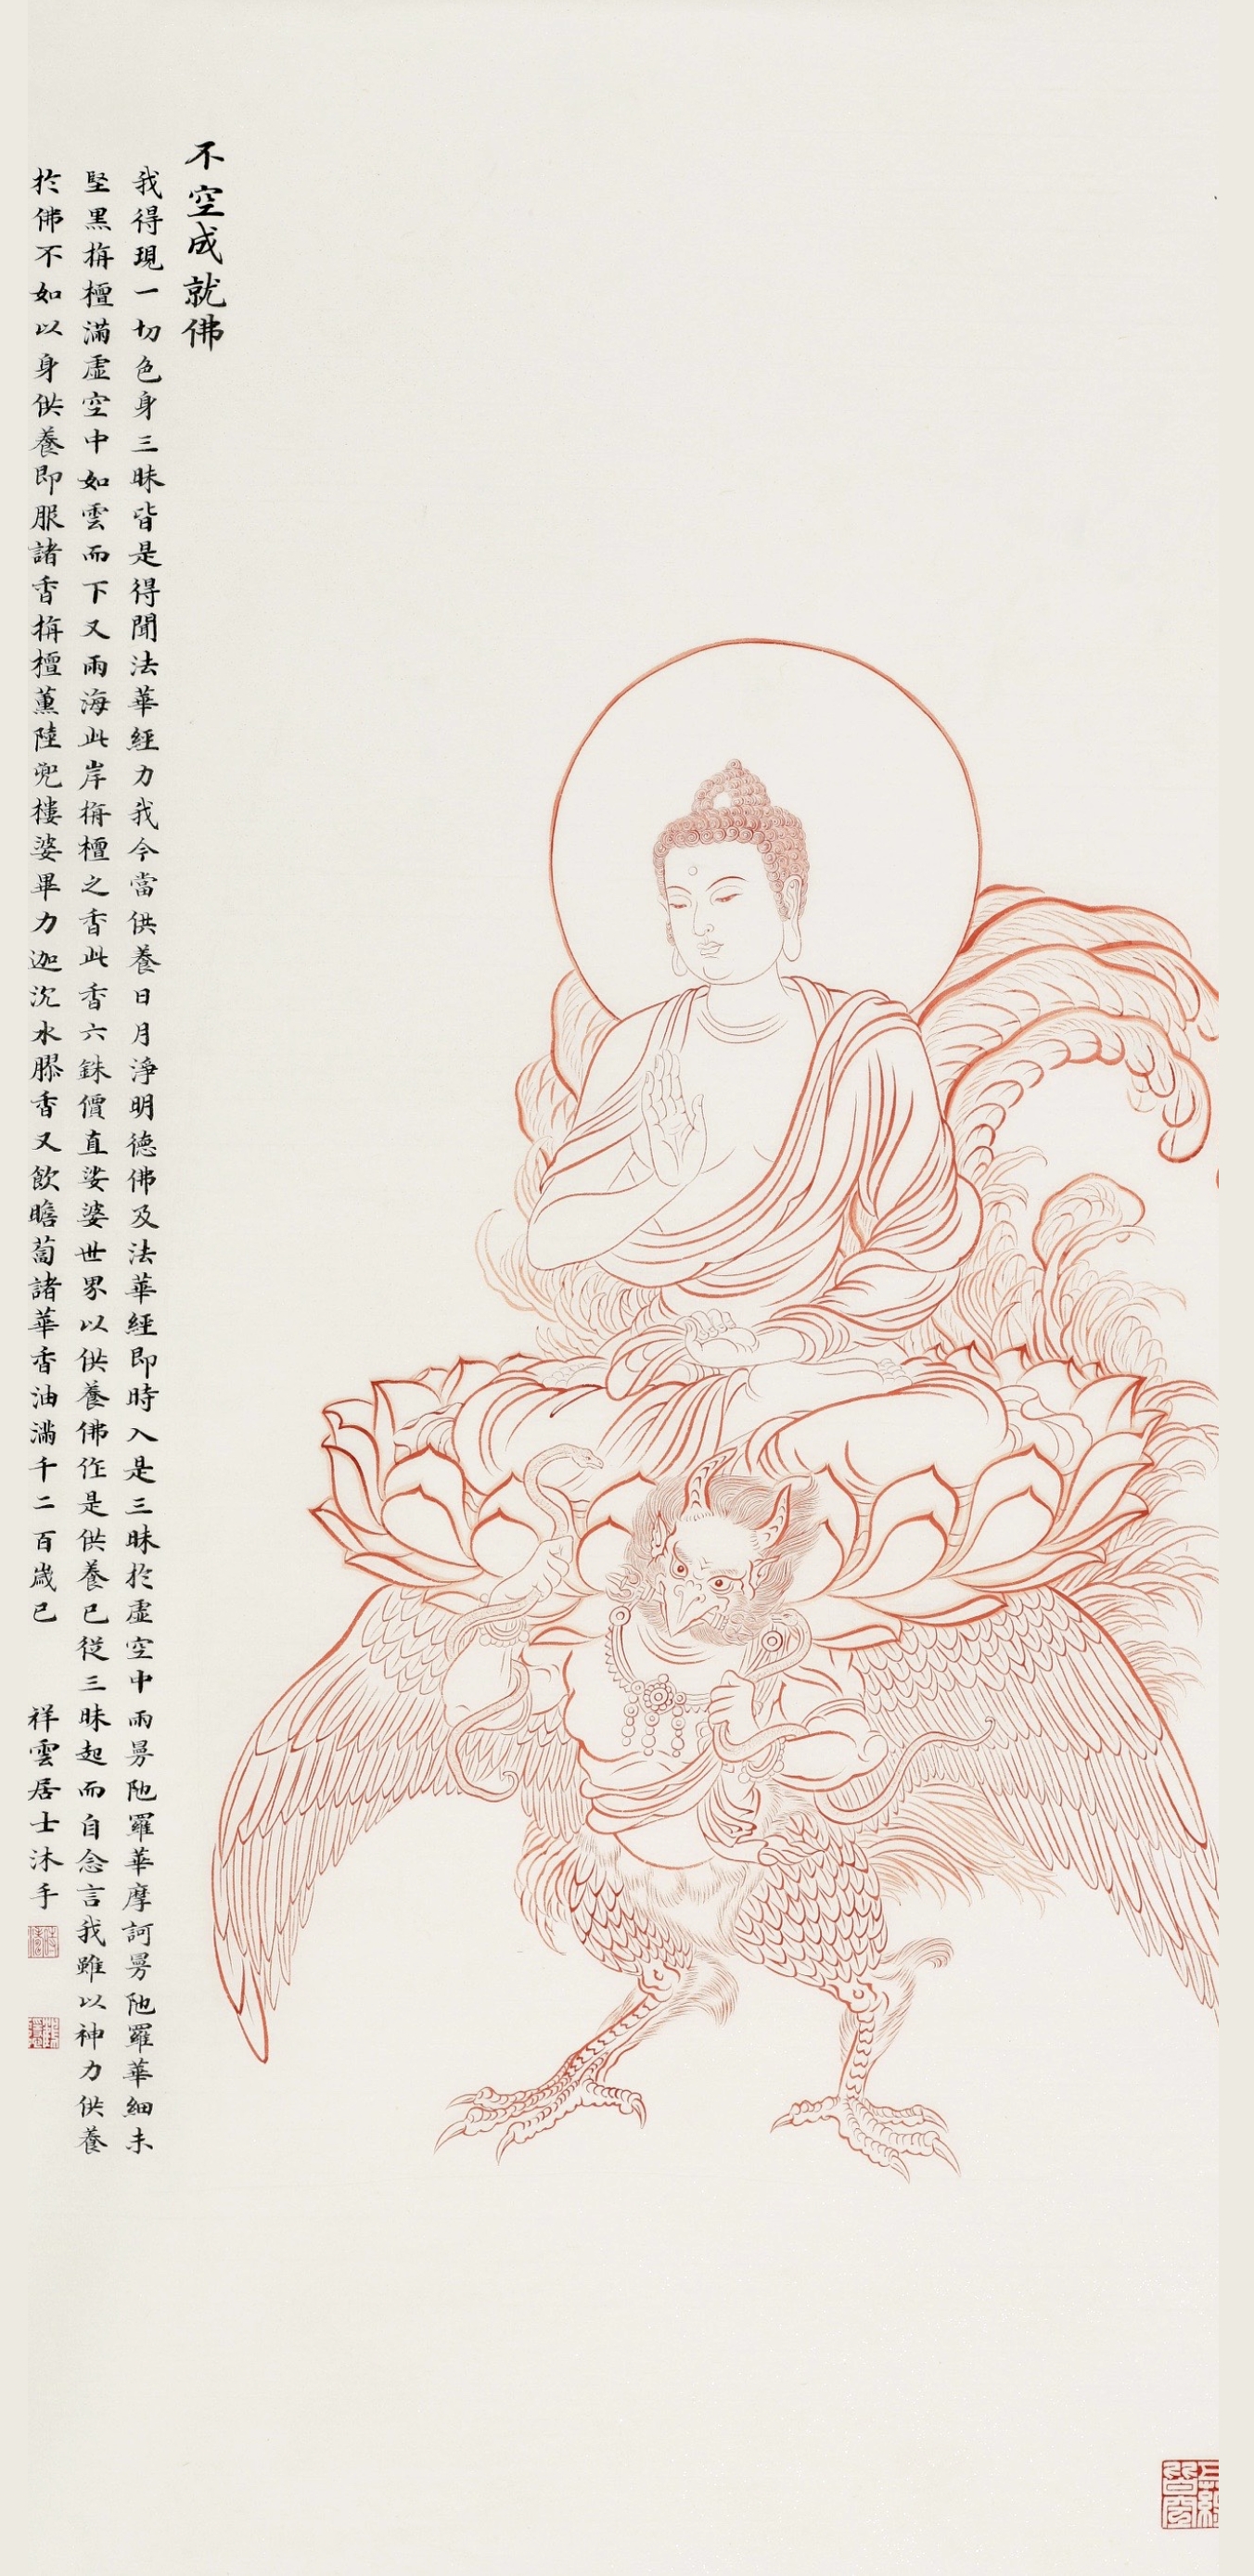 不空成就佛
我得現一切色身三昧皆是得聞法華經力我今當供養日月淨明德佛及法華經即時入是三昧於虛空中雨曼陁羅華摩訶曼陁羅華細末
堅黑栴檀滿虛空中如雲而下又雨海此岸栴檀之香此香六銖價直娑婆世界以供養佛作是供養已從三昧起而自念言我雖以神力供養
於佛不如以身供養即服諸香栴檀薰陸兜樓婆畢力迦沉水膠香又飲瞻蔔諸華香油滿千二百歲已
祥雲居士沐手